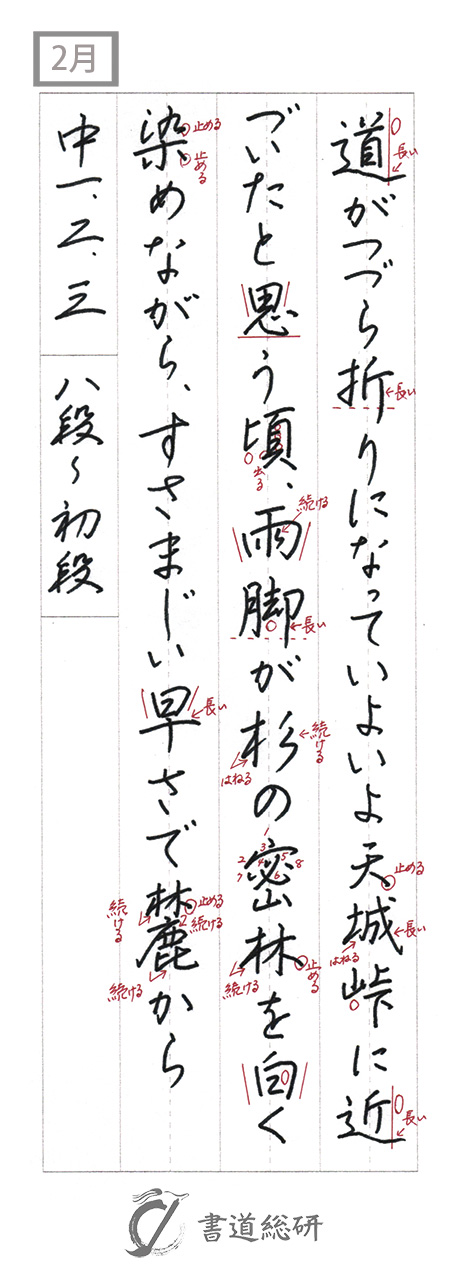 2月
道がつづら折りになっていよいよ天城峠に近
長い
長い
止める
長い
はねる
長い
づいたと思う頃、雨脚が杉の密林を白く
出る
続ける
長い
続ける
はねる
1 2 3 4 5 6 7 8
止める
続ける
染めながら、すさまじい早さで麓から
止める
止める
長い
止める
続ける
続ける
続ける
中一、二、三
八段〜初段
書道総研